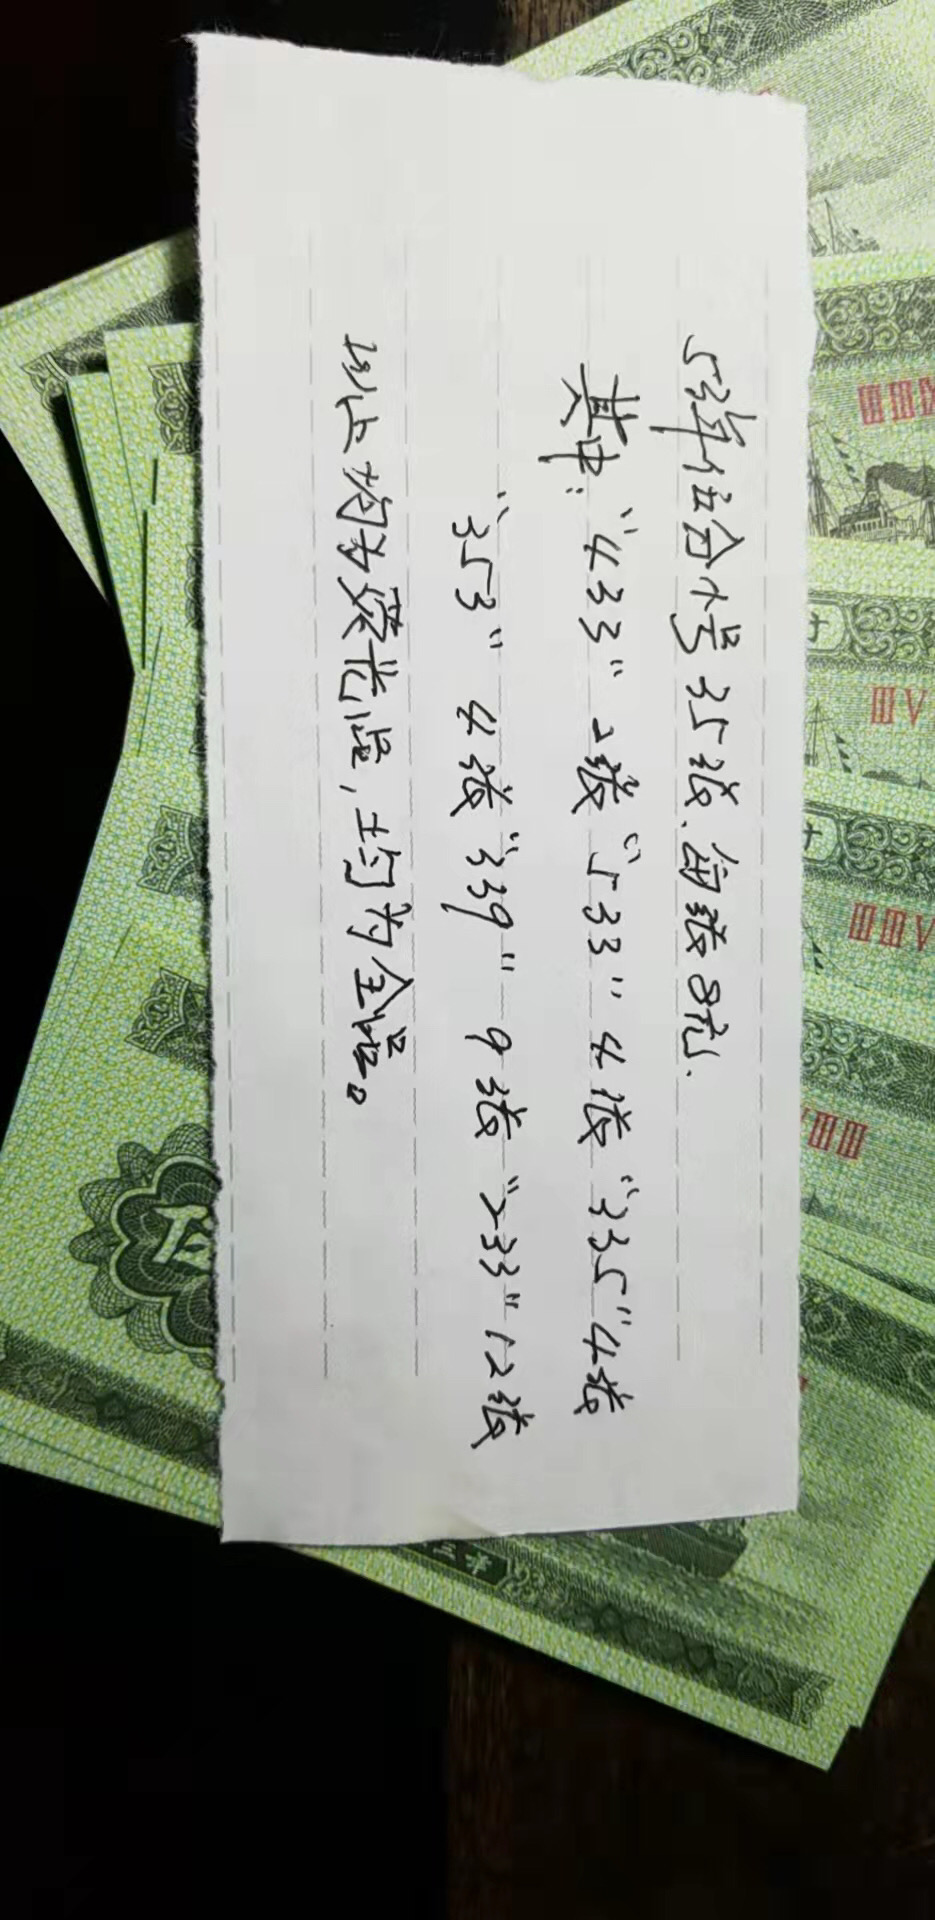 53年伍分小号35张.每张8元.
其中:"433"2张"533"4张"335"4张
"353"4张"339"9张"233"12张
以上均为荧光点,均为全品。
ⅢⅤ
ⅢⅢⅤ
伍